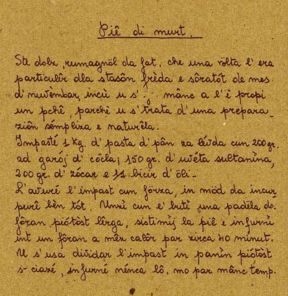 Piê di murt.
Stê dolz, rumagnôl da fat, che una vôlta l'era
particulêr dla stasôn frèda e sôratôt de mes
d'nuvèmbar, incù u s' mânc a l'è propi
un pchê, parchè u s'trata d'una prepara-
ziôn sèmpliza e naturêla.
Impastê 1 Kg. d'pasta d'pân za livda cun 200 gr.
ad garój d'côcla, 150 gr. d'uvêta sultanina,
200 gr. d'zócar e 1½ bicir d'ôli.
L'impast cun fôrza, in môd da
ben tót. Unzì cun e' butì una padèla da
fôran piótòst lêrga, sistimì la piê e infurnì
int un fôran a mêz calôr par zirca 40 minut.
U s'usa dividar l'impast in panin piótòst
s-ciazé, infurnê nènca lô, mo par mânc temp.